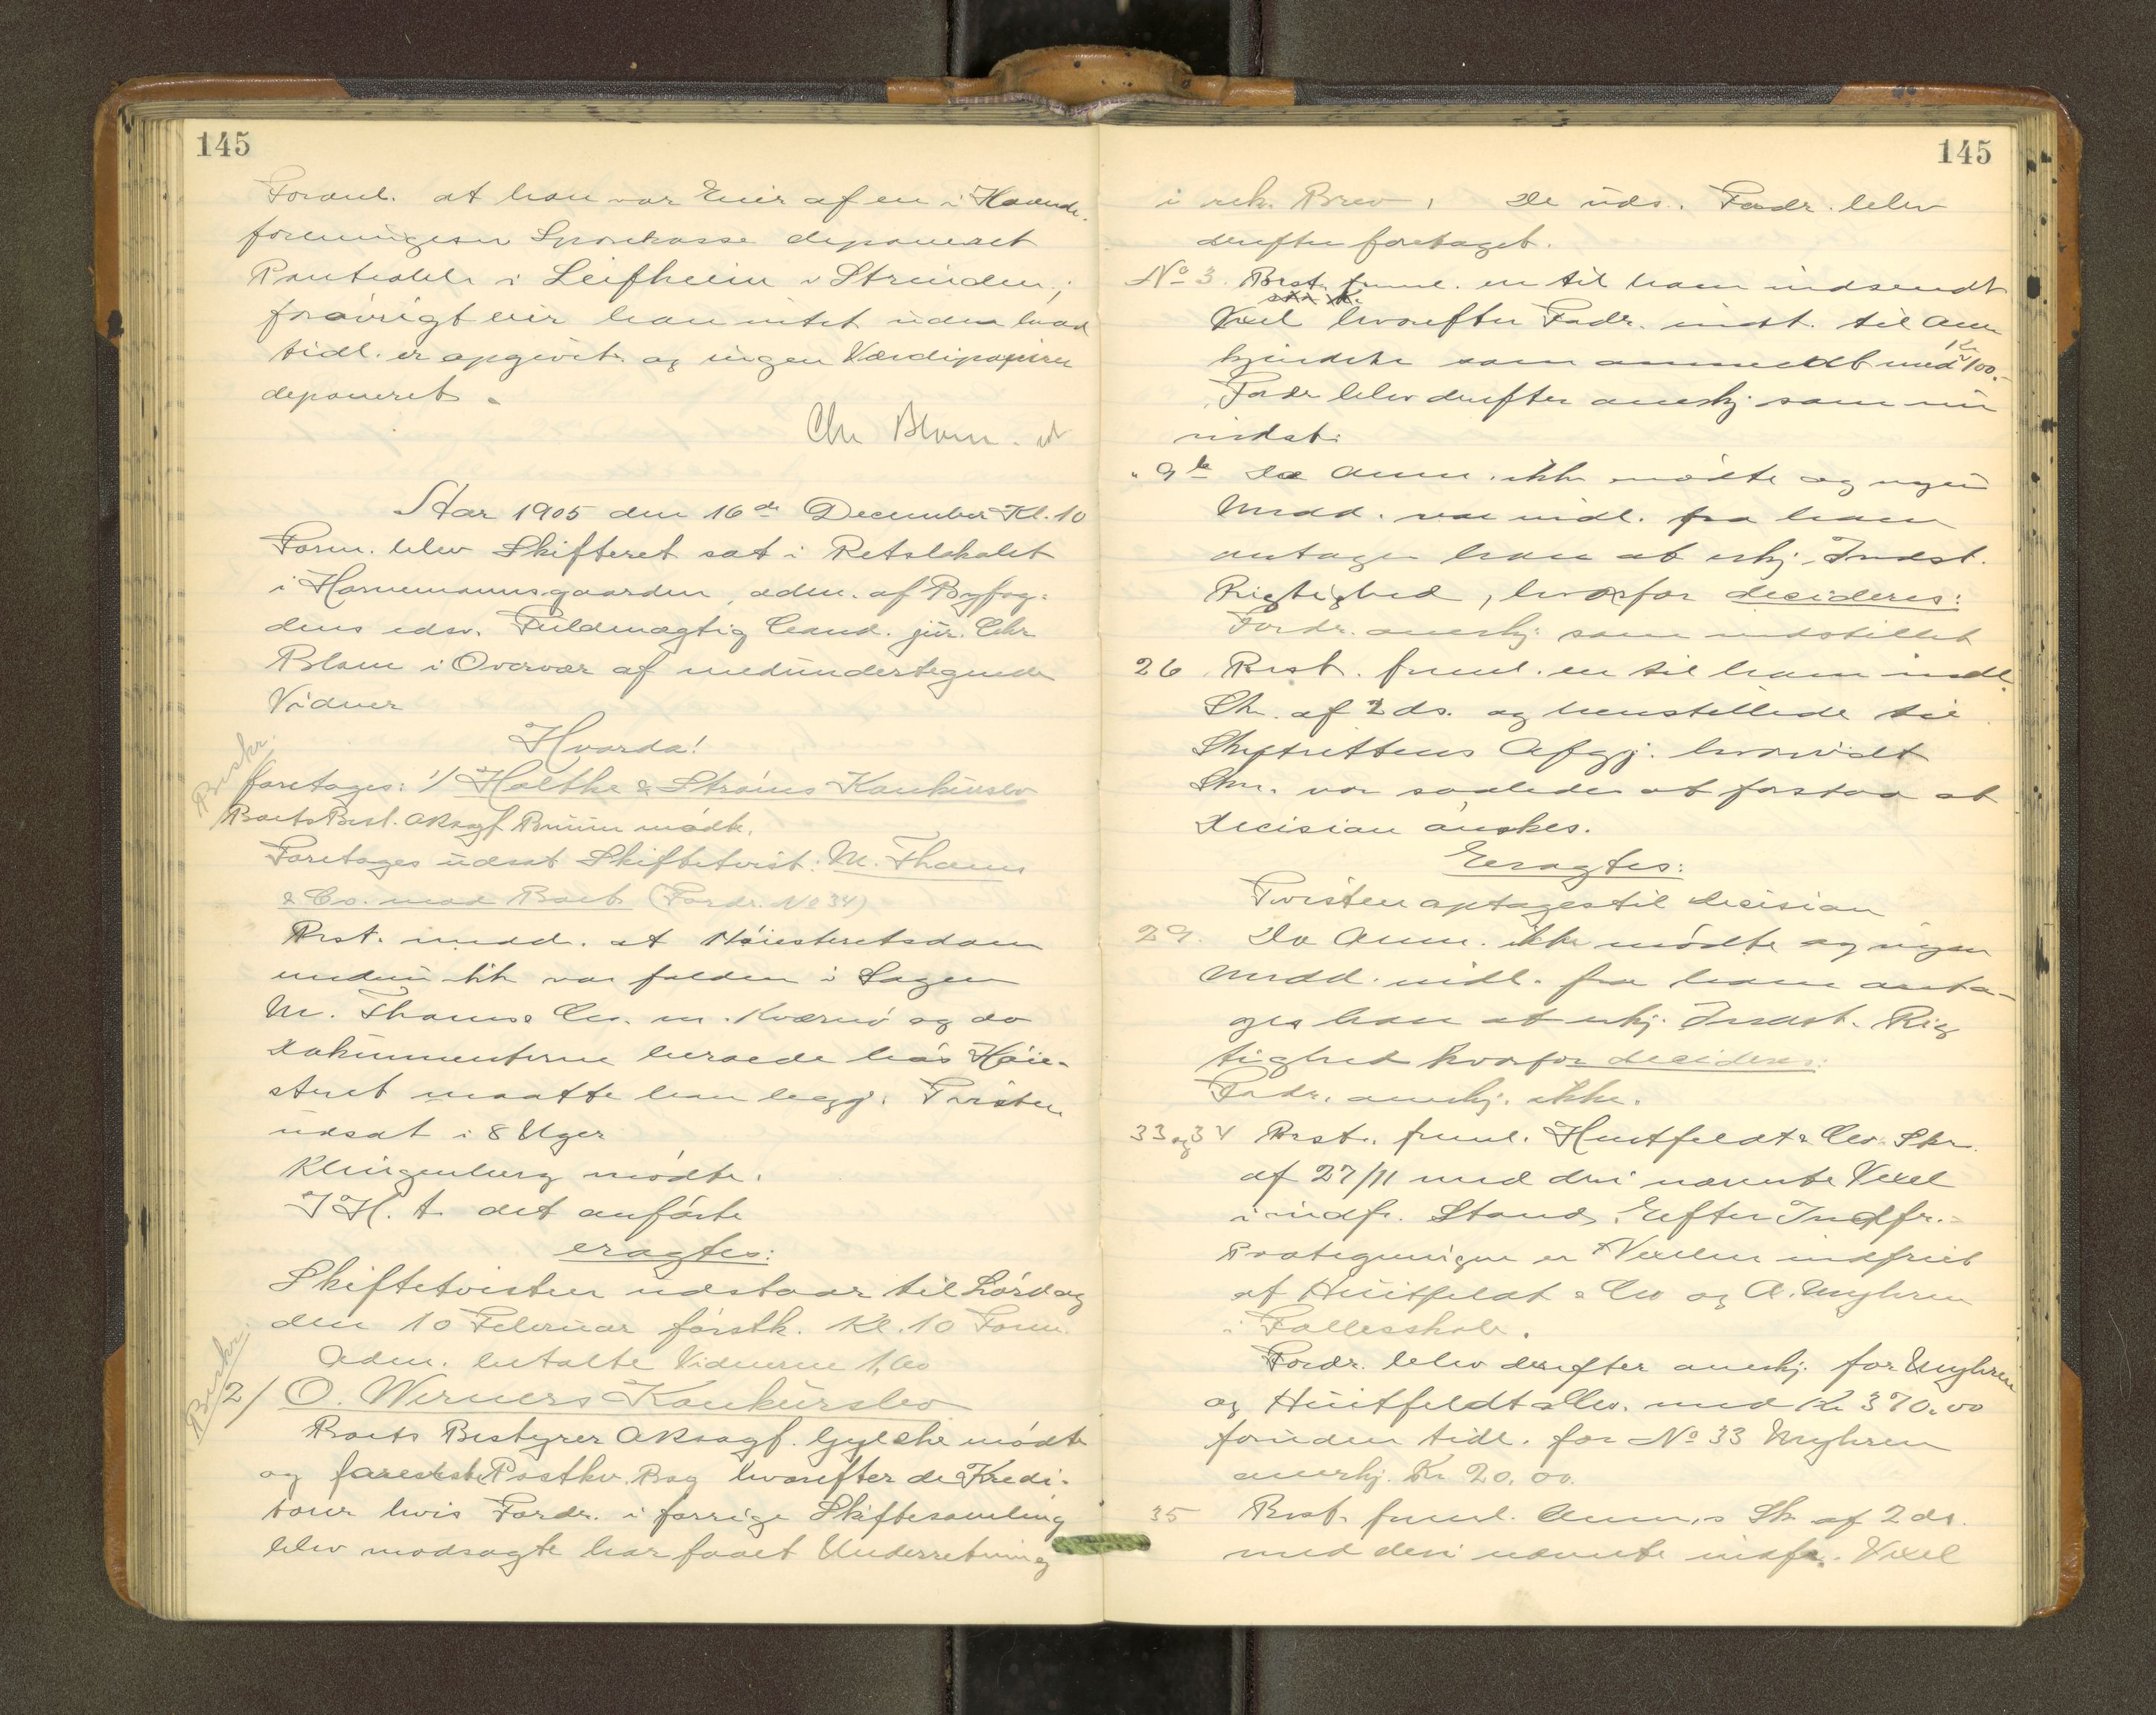 145
Foranl. at han var Eier af en i Haandv.
foreningens Sparekasse deponeret
Panteobl. i Leifheim i Strinden;
forøvrigt eier han intet uden hvad
tidl. er opgivet og ingen Værdipapirer
deponeret.
Chr Blom. 
Aar 1905 den 16de December Kl. 10
Form. blev Skifteret sat i Retslokalet
i Hornemannsgaarden, adm. af Byfog-
dens edsv. Fuldmægtig Cand. jur. Chr
Blom i Overvær af medundertegnede
Vidner
Hvorda!
Beskr.
foretages: 1/ Holtke & Strøms Konkursbo
Boets Best. ORsagf. Bruun mødte.
Foretages udsat Skiftetvist: M. Thams
& Co. mod Boet (Fordr. No 34)
Best. medd. at Høiesteretsdom
endnu ikke var falden i Sagen
M. Thams & Co. m. Kværnø og da
Dokumenterne beroede hos Høie-
steret maatte han begj. Tvisten
udsat i 8 Uger
Klingenberg mødte.
I H. t. det anførte
eragtes:
Skiftetvisten udstaar til Lørdag
den 10 Februar førstk. Kl. 10 Form.
Adm. betalte Vidnerne 1,60
Beskr.
2/ O. Werners Konkursbo
Boets Bestyrer ORsagf. Gylche mødte
og foreviste Postkv. Bog hvorefter de Kredi-
torer hvis Fordr. i forrige Skiftesamling
blev modsagte har faaet Underretning
145
i rek. Brev. De uds. Fordr. blev
derefter foretaget.
No 3. Best. freml. en til ham indsendt
Vexel hvorefter Fordr. indst. til aner
kjendelse som anmeldt med Kr 100.-
Fordr blev derefter anerkj som nu
indst.
" 9 Da Anm. ikke mødte og ingen
Medd. var indl. fra ham
antages han at erkj. Indst.
Rigtighed, hvorfor decideres:
Fordr. anerkj. som indstillet
26 Best. freml. en til ham indl.
Sk. af 2 ds. og henstillede til
Skifterettens Afgj. hvorvidt
Skr. var saaledes at forstaa at
Decision ønskes.
Eragtes:
Tvisten optages til decision
29. Da Anm. ikke mødte og ingen
Medd. indl. fra ham anta-
ges han at erkj. Indst. Rig
tighed hvorfor decideres:
Fordr. anerkj. ikke.
33 og 34 Best. freml. Huitfeldt & Co. Skr.
af 27/11 med deri nævnte Vexel
i indfr. Stand. Efter Indfr.-
paategningen er Vexelen indfriet
af Huitfeldt & Co og A. Myhren
i Fællesskab.
Fordr. blev derefter anerkj. for Myhren
og Huitfeldt & Co. med Kr 370.00
foruden tidl. for No 33 Myhren
anerkj. Kr 20.00.
35 Best. freml. Anm.s Sk. af 2 ds.
med deri nævnte indfr. Vexel